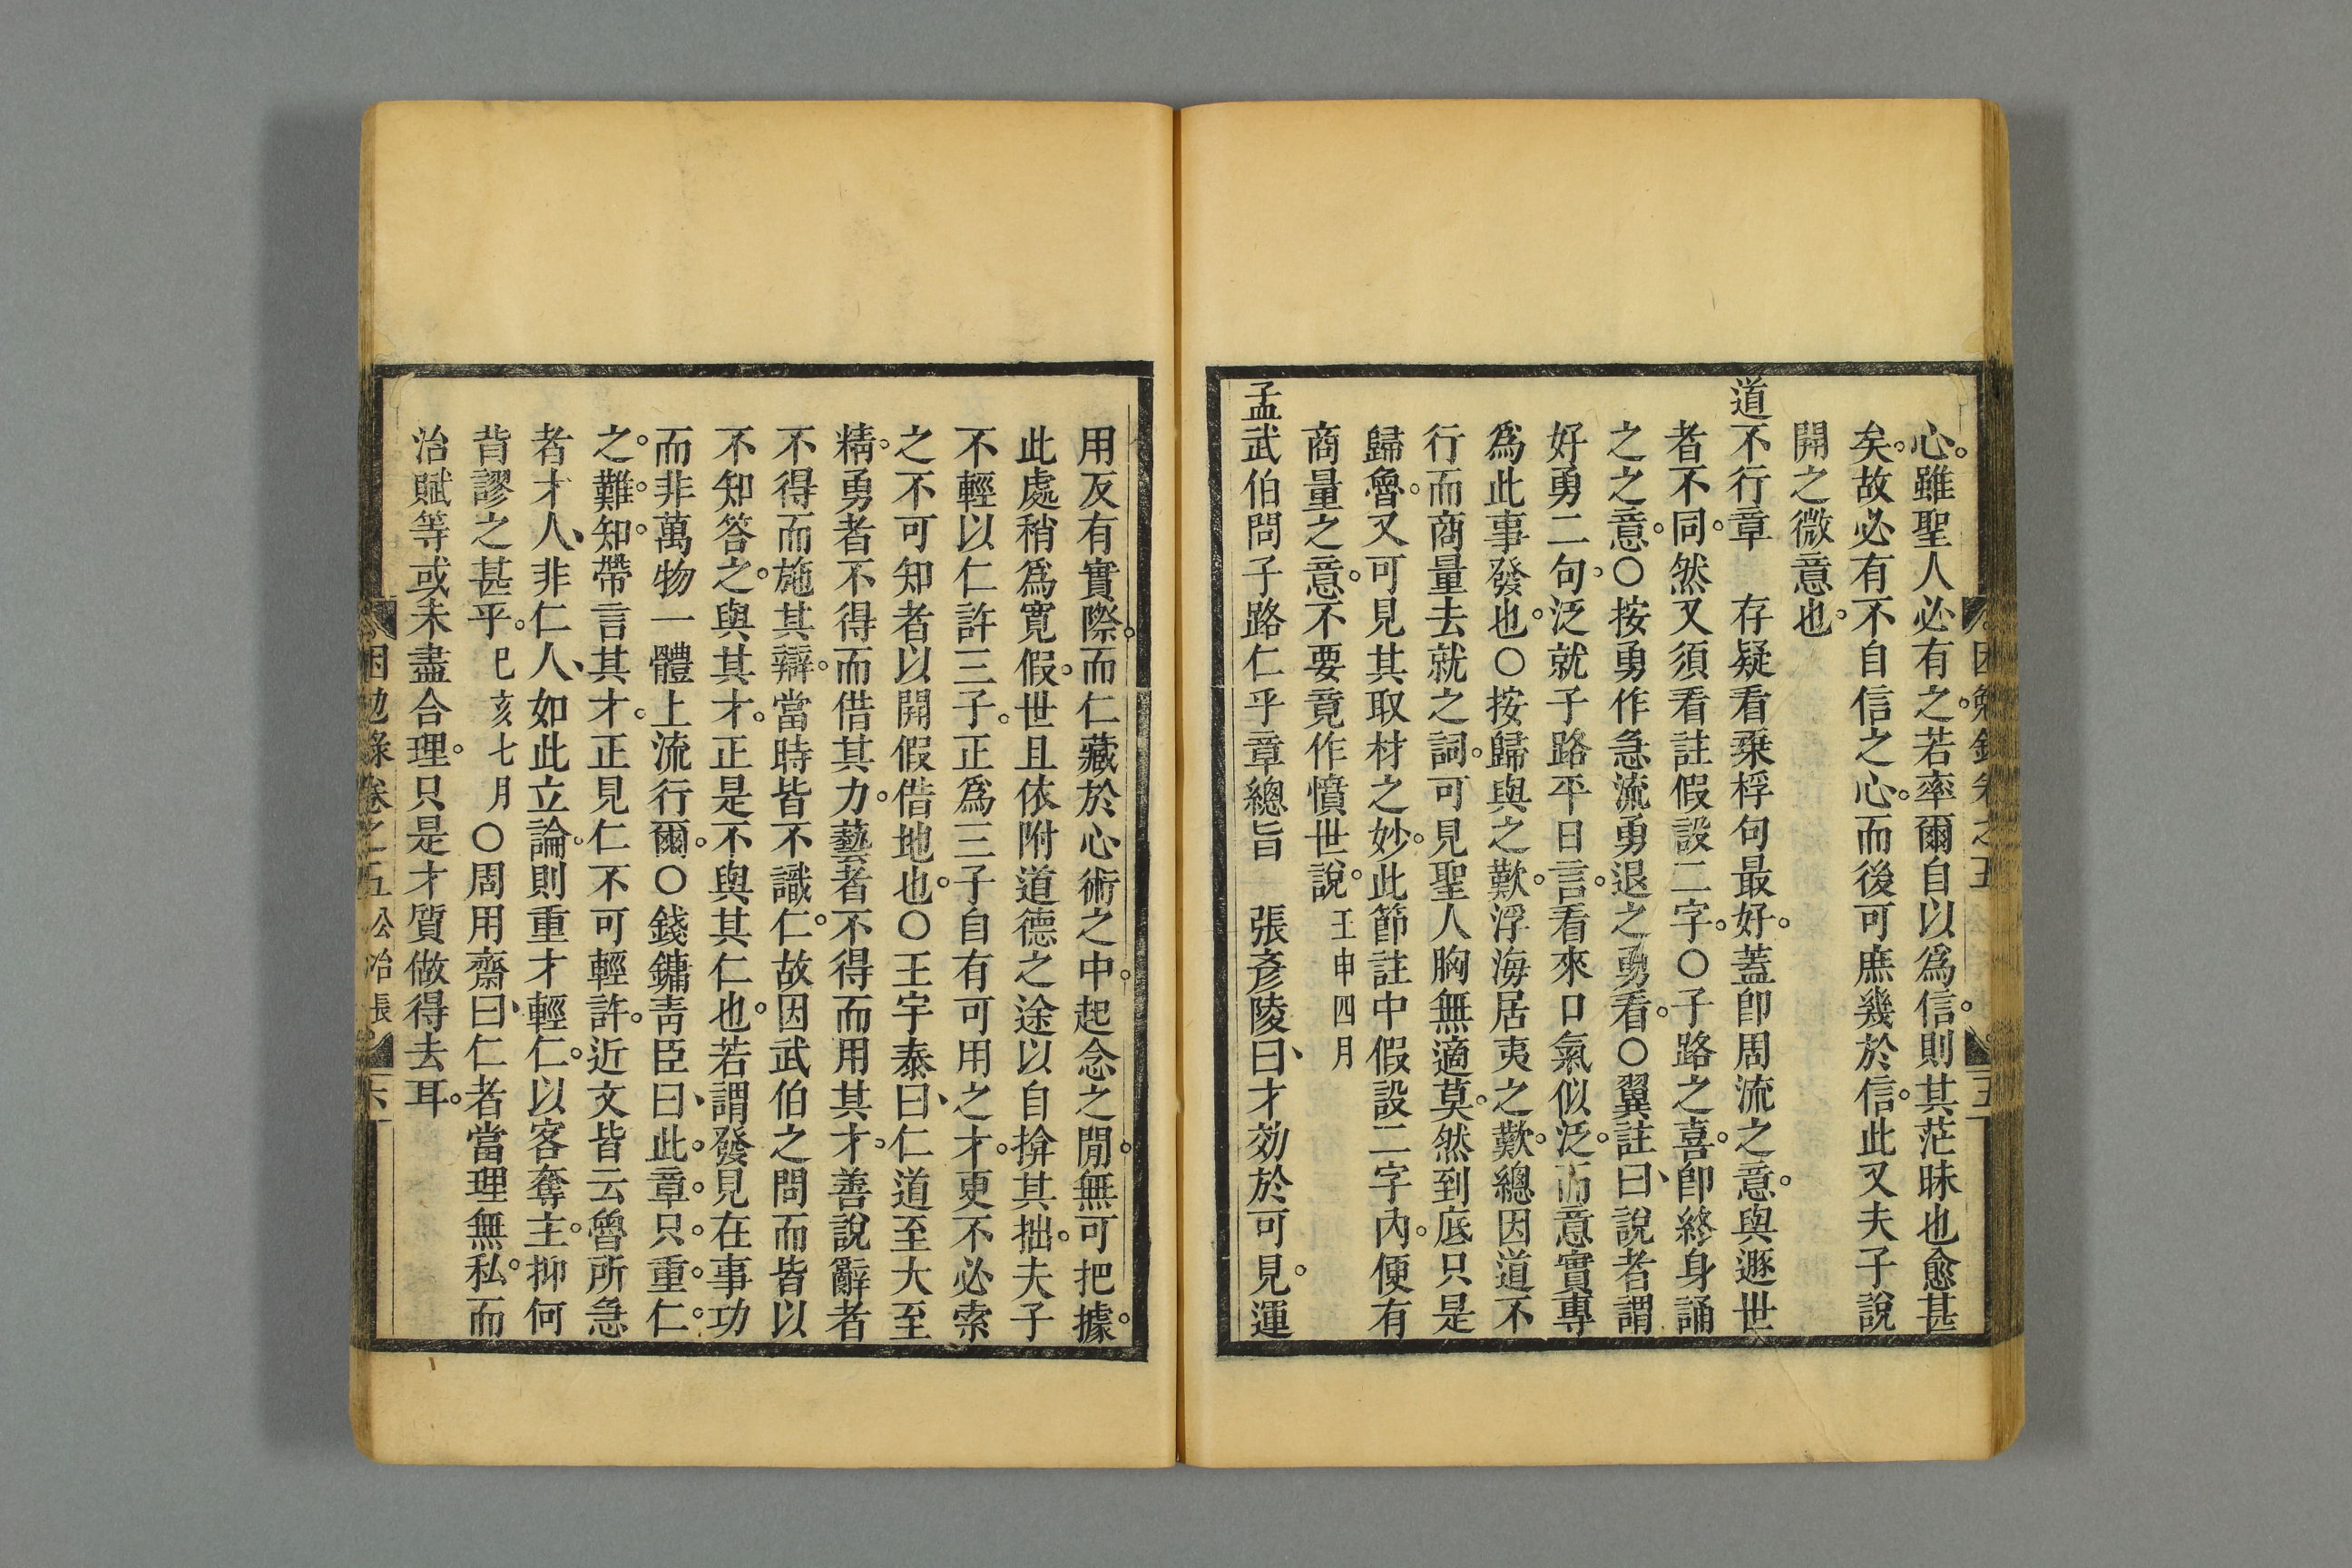 心。雖聖人必有之。若率爾自以爲信。則其茫昧也愈甚
矣。故必有不自信之心。而後可庶幾於信。此又夫子說
開之微意也。
道不行章　存疑看乘桴句最好。蓋卽周流之意。與遯世
者不同。然又須看註假設二字。〇子路之喜。卽終身誦
之之意。〇按勇作急流勇退之勇看。〇翼註曰、說者謂
好勇二句。泛就子路平日言。看來口氣似泛。而意實專
爲此事發也。〇按歸與之歎。浮海居夷之歎。總因道不
行而商量去就之詞。可見聖人胸無適莫。然到底只是
歸魯。又可見其取材之妙。此節註中假設二字內。便有
商量之意。不要竟作憤世說。壬申四月
孟武伯問子路仁乎章總旨　張彥陵曰、才効於可見。運
用反有實際。而仁藏於心術之中。起念之閒。無可把據。
此處稍爲寬假。世且依附道德之途以自揜其拙。夫子
不輕以仁許三子。正爲三子自有可用之才。更不必索
之不可知者以開假借地也。〇王宇泰曰、仁道至大至
精。勇者不得而借其力。藝者不得而用其才。善說辭者
不得而施其辯。當時皆不識仁。故因武伯之問而皆以
不知答之。與其才。正是不與其仁也。若謂發見在事功
而非萬物一體上流行爾。〇錢鏞靑臣曰、此。章。只。重。仁。
之。難。知。帶言其才。正見仁不可輕許。近文皆云魯所急
者才人、非仁人、如此立論。則重才輕仁。以客奪主。抑何
背謬之甚乎。巳亥七月〇周用齋曰、仁者當理無私。而
治賦等或未盡合理。只是才質做得去耳。
困勉錄卷之五　公冶長　六